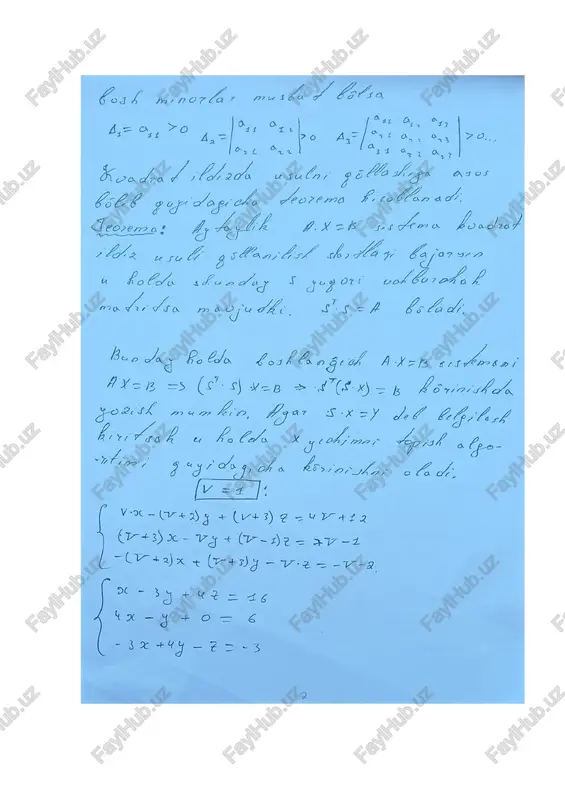 bosh minorlar musbat bo'lsa
Δ₁ = a₁₁ > 0 Δ₂ = |a₁₁ a₁₂; a₂₁ a₂₂| > 0 Δ₃ = |a₁₁ a₁₂ a₁₃; a₂₁ a₂₂ a₂₃; a₃₁ a₃₂ a₃₃| > 0...
Kvadrat ildizda usulni qo'llashga asos
bo'lib quyidagicha teorema hisoblanadi.
Teorema: Aytaylik A·X=B sistema kvadrat
ildiz usuli qo'llanilish shartlari bajarsin
u holda shunday S yuqori uchburchak
matritsa mavjudki. SᵀS = A bo'ladi.
Bunday holda boshlang'ich A·X=B sistemani
AX=B => (Sᵀ·S) X=B => Sᵀ(S·X) = B ko'rinishda
yozish mumkin. Agar S·X=Y deb belgilash
kiritsak u holda X yechimni topish algo-
ritmi quyidagicha ko'rinishni oladi.
V = 1 :
V·x-(V+2)y+(V+3)z=4V+12
(V+3)x-Vy+(V-1)z=7V-1
-(V+2)x+(V+3)y-V·z=-V-2.
x-3y+4z=16
4x-y+0=6
-3x+4y-z=-3
FaylHub.uz